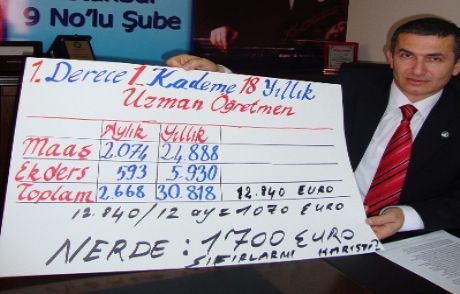 9 No'lu Şube
1. Derece 1. Kademe 18 Yıllık
Uzman Öğretmen
Aylık Yıllık
Maaş 2.074 24.888
Ekders 593 5.930
Toplam 2.668 30.818 12.840 EURO
12.840/12 ay = 1070 EURO
NERDE : 1700 EURO
SIFIRLARMI